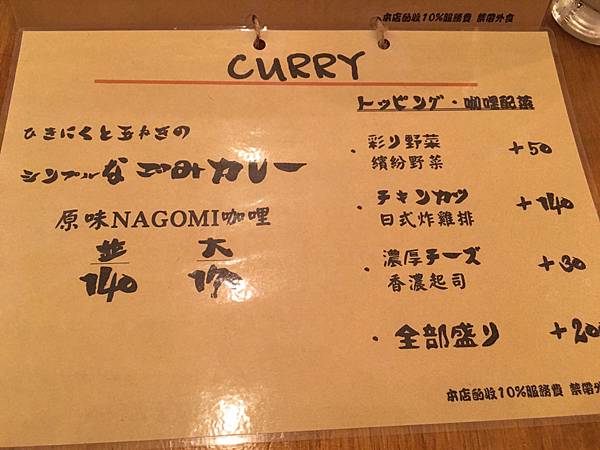 本店酌收10%服務費 禁帶外食
CURRY
ひきにくと玉ねぎの
シンプルなごみカレー
原味NAGOMI咖哩
並 大
140 170
トッピング・咖哩配菜
・彩り野菜 +50
繽紛野菜
・チキンカツ +140
日式炸雞排
・濃厚チーズ +30
香濃起司
・全部盛り +200
本店酌收10%服務費 禁帶外